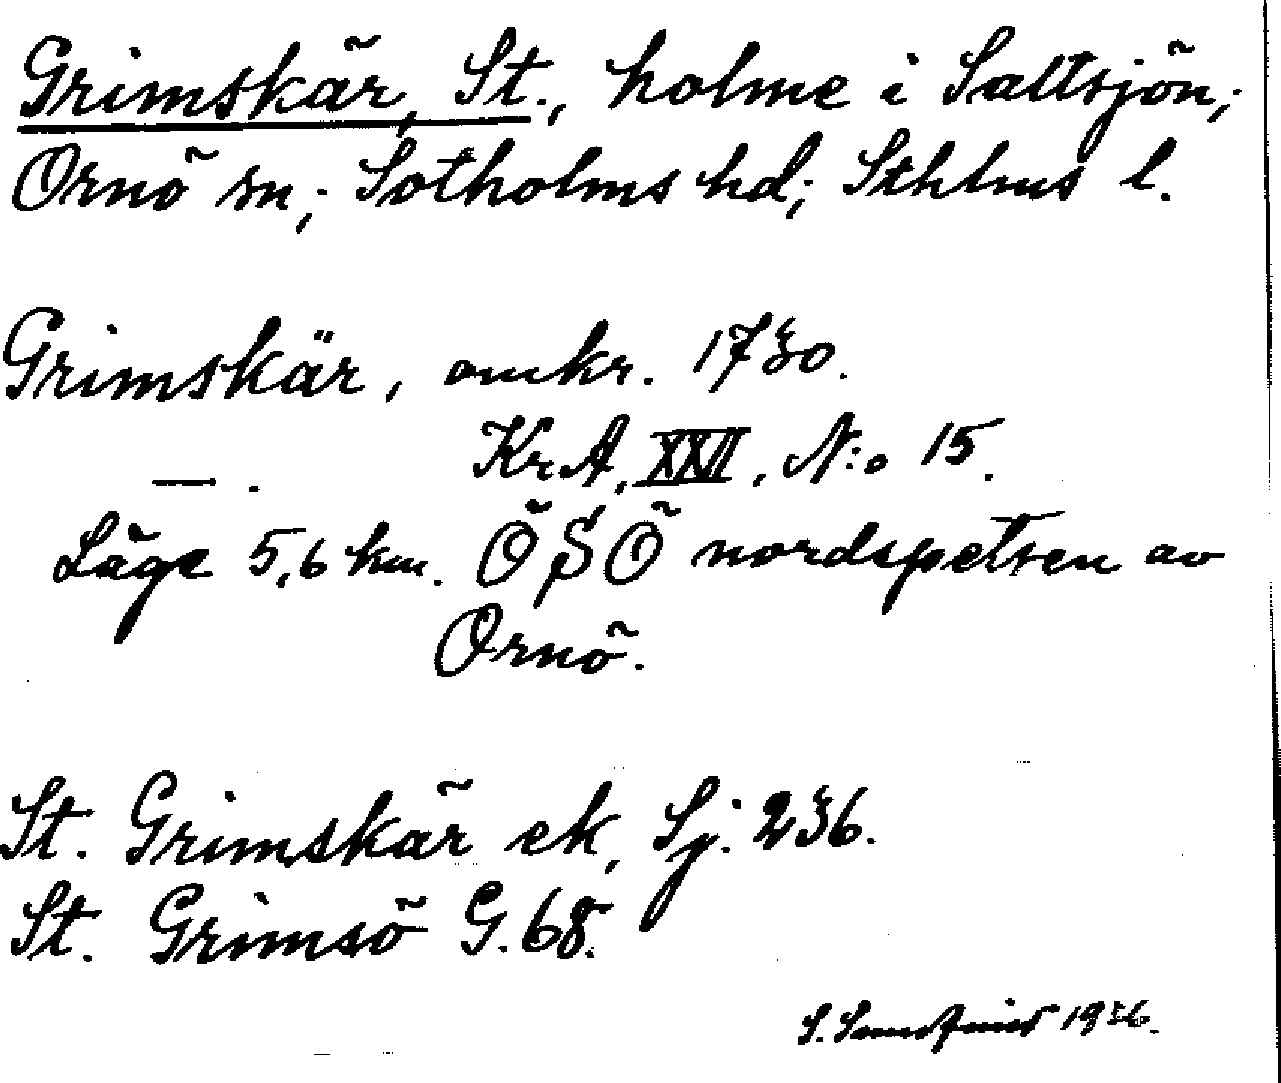 Grimskär, St., holme i Saltsjön;
Ornö sn; Sotholms hd; Sthlms l.
Grimskär, omkr. 1730.
— . KrA, XXII, N:o 15.
Läge 5,6 km. ÖSÖ nordspetsen av
Ornö.
St. Grimskär ek, Sj. 236.
St. Grimsö G. 68.
S. 1936.